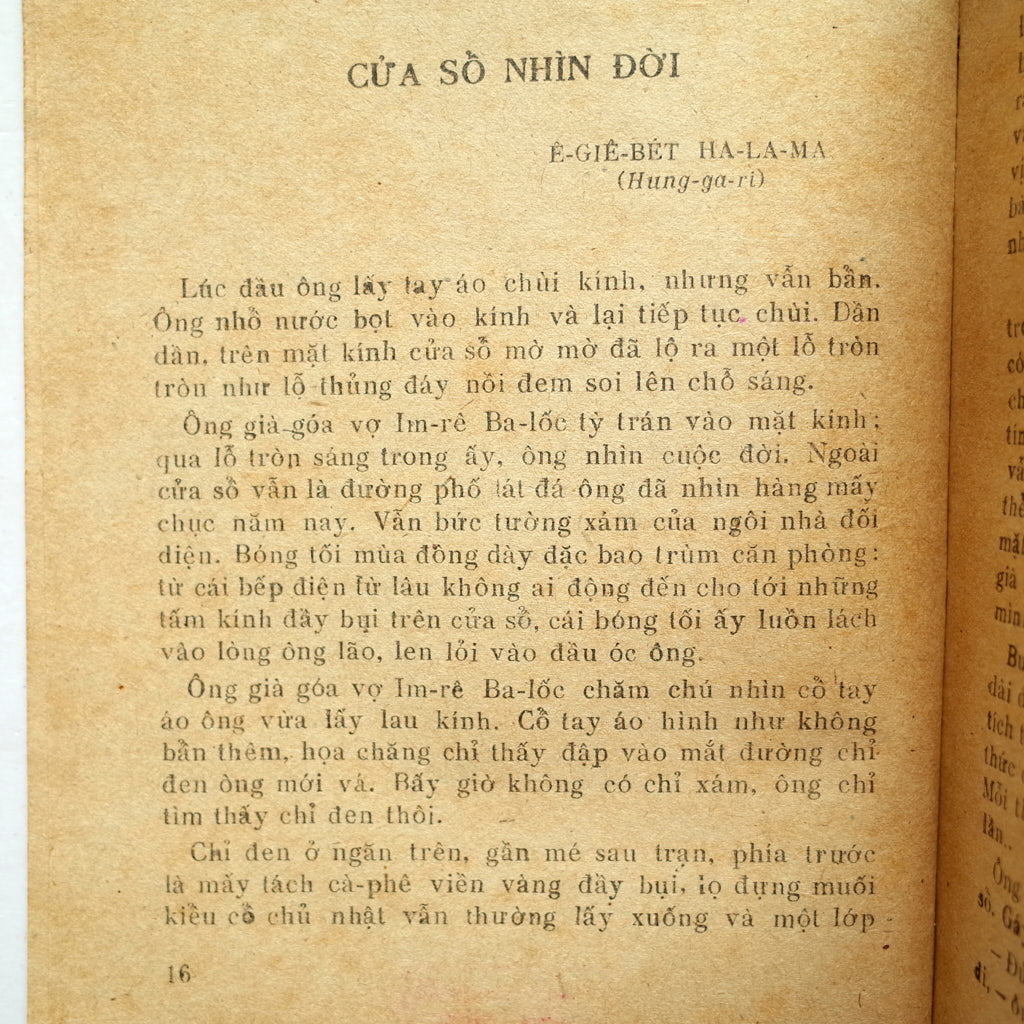 CỬA SỔ NHÌN ĐỜI
Ê-GIÊ-BÉT HA-LA-MA
(Hung-ga-ri)
Lúc đầu ông lấy tay áo chùi kính, nhưng vẫn bẩn.
Ông nhổ nước bọt vào kính và lại tiếp tục chùi. Dần
dần, trên mặt kính cửa sổ mờ mờ đã lộ ra một lỗ tròn
tròn như lỗ thủng đáy nồi đem soi lên chỗ sáng.
Ông già góa vợ Im-rê Ba-lốc tỳ trán vào mặt kính;
qua lỗ tròn sáng trong ấy, ông nhìn cuộc đời. Ngoài
cửa sổ vẫn là đường phố lát đá ông đã nhìn hàng mấy
chục năm nay. Vẫn bức tường xám của ngôi nhà đối
diện. Bóng tối mùa đông dày đặc bao trùm căn phòng:
từ cái bếp điện từ lâu không ai động đến cho tới những
tấm kính đầy bụi trên cửa sổ, cái bóng tối ấy luồn lách
vào lòng ông lão, len lỏi vào đầu óc ông.
Ông già góa vợ Im-rê Ba-lốc chăm chú nhìn cổ tay
áo ông vừa lấy lau kính. Cổ tay áo hình như không
bẩn thêm, họa chăng chỉ thấy đập vào mắt đường chỉ
đen ông mới vá. Bấy giờ không có chỉ xám, ông chỉ
tìm thấy chỉ đen thôi.
Chỉ đen ở ngăn trên, gần mé sau trạn, phía trước
là mấy tách cà-phê viền vàng đầy bụi, lọ đựng muối
kiểu cổ chủ nhật vẫn thường lấy xuống và một lớp
16